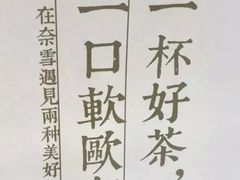 一杯好茶，
一口軟歐
在奈雪遇見兩种美好